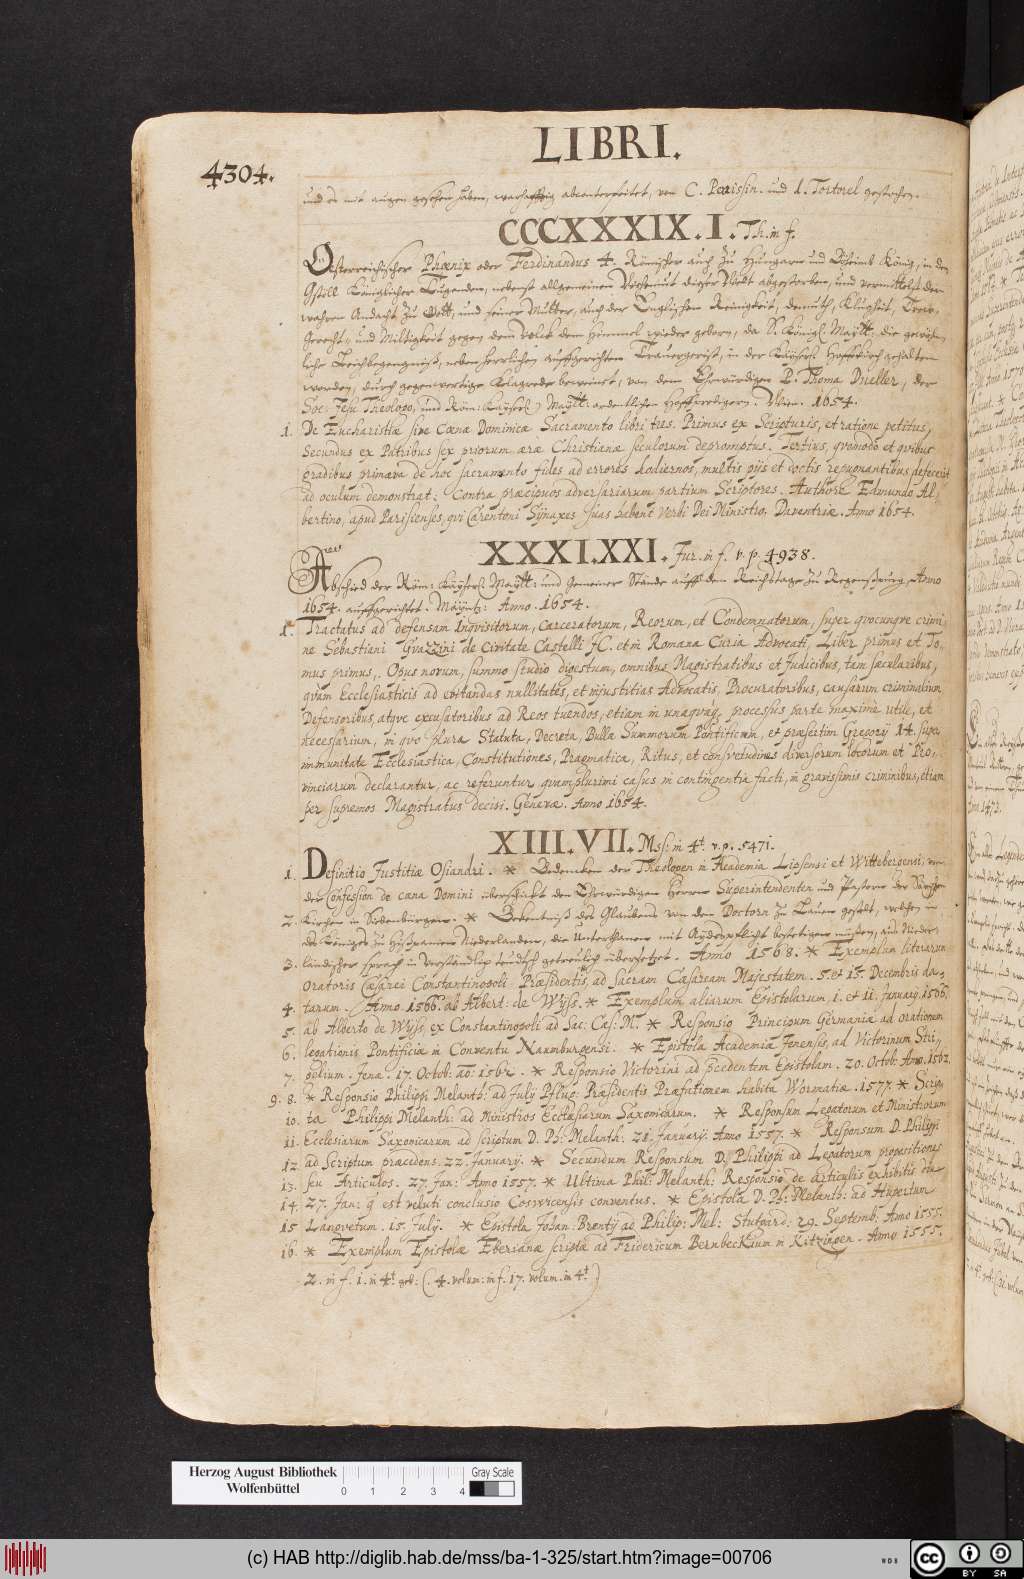 LIBRI.
4304.
und es mit augen gesehen haben, warhafftig abcontrefeitet, von C. Perissin. und I. Tortorel gestochen.
CCCXXXIX. I. Th. in f.
Oesterreichischer Phœnix oder Ferdinandus 4. Römischer auch zu Hungarn und Böheimb König, in der
Königlicher Tugenden, nebenst allgemeinen dieser Welt abgestorben, und vermittelst der
wahren Andacht zu Gott, und seiner Mutter, auch der Englischen Reinigkeit, demuth, Klugheit, Trew,
Gerecht, und Miltigkeit gegen dem Volck dem Himmel wieder geborn, da S. Königl. Maytt: die gewöhn
liche Leichbegengnüß, neben herrlichen auffgerichten Trauergerüst, in der Kayserl. Hoffkirch gehalten
worden, durch gegenwertige Klagrede beweinet, von dem Ehrwürdigen P. Thoma Dueller, der
Soc: Jesu Theologo, und Röm: Kayserl. Maytt: ordentlichen Hoffpredigern. Wien. 1654.
1. De Eucharistiæ sive Cœnæ Dominicæ Sacramento libri tres. Primus ex Scripturis, et ratione petitus,
Secundus ex Patribus sex priorum æræ Christianæ seculorum depromptus. Tertius, qvomodo et qvibus
gradibus primæva de hoc sacramento fides ad errores hodiernos, multis piis et doctis repugnantibus defecerit
ad oculum demonstrat: Contra præcipuos adversariarum partium Scriptores. Authore Edmundo Al-
bertino, apud Parisienses, qvi Carentoni Synaxes suas habent Verbi Dei Ministro. Daventriæ. Anno 1654.
XXXI. XXI. Jur. in f. v. p. 4938.
Abschied der Röm: Kayserl. Maytt: und gemeiner Stände auff dem Reichstage zu Regenspurg Anno
1654. auffgerichtet. Mäyntz: Anno. 1654.
1. Tractatus ad defensam Inqvisitorum, Carceratorum, Reorum, et Condemnatorum, super qvocunqve crimi
ne Sebastiani Gvazzini de Civitate Castelli JC. et in Romana Curia Advocati, Liber primus et To-
mus primus, Opus novum, summo studio digestum, omnibus Magistratibus et Judicibus, tam sæcularibus,
qvàm Ecclesiasticis ad evitandas nullitates, et injustitias Advocatis, Procuratoribus, causarum criminalium
Defensoribus, atqve excusatoribus ad Reos tuendos, etiam in unaqvaq. processus parte maximè utile, et
necessarium, in qvo plura Statuta, Decreta, Bullæ Summorum Pontificum, et præsertim Gregory 14. super
immunitate Ecclesiastica, Constitutiones, Pragmatica, Ritus, et consvetudines diversorum locorum et Pro-
vinciarum declarantur, ac referuntur, qvamplurimi casus in contingentia facti, in gravissimis criminibus, etiam
per supremos Magistratus decisi. Genevæ. Anno 1654.
XIII. VII. Mss: in 4t. v. p. 5471.
1. Definitio Justitiæ Osiandri. * Bedencken der Theologen in Academia Lipsensi et Wittebergensi, von
der Confession de cœna Domini überschickt den Ehrwürdigen Herrn Superintendenten und Pastorn der
2. Kirchen in Siebenbürgen. * Bekentnüß des Glaubens von den Doctorn zu Löven gestelt, welchen in
des Königes zu Hispanien Niederlanden, die Unterthanen mit Aydespflicht bestetigen müssen, aus Nieder-
3. ländischer sprach in verstendlich teudsch getreulich übersetzet. Anno 1568. * Exemplum literarum
oratoris Cæsarei Constantinopoli Præsidentis, ad sacram Cæsaream Majestatem. 5. et 15. Decembris da-
4. tarum. Anno 1566. ab Albert: de Wyss. * Exemplum aliarum Epistolarum, 1. et 11. January. 1566.
5. ab Alberto de Wyss, ex Constantinopoli ad Sac: Cæs: M. * Responsio Principum Germaniæ ad orationem
6. legationis Pontificiæ in Conventu Naumburgensi. * Epistola Academiæ Jenensis, ad Victorinum Stri-
7. gelium. Jenæ. 17. Octob: ao: 1562. * Responsio Victorini ad præcedentem Epistolam. 20. Octob: Ann. 1562.
9. 8. * Responsio Philippi Melanth: ad July Pflug: Præsidentis Præfationem habita Wormatiæ. 1577. * Scrip-
10. ta Philippi Melanth: ad Ministros Ecclesiarum Saxonicarum. * Responsum Legatorum et Ministrorum
11. Ecclesiarum Saxonicarum ad scriptum D. Ph: Melanth: 21. January. Anno 1557. * Responsum D. Philippi
12. ad Scriptum præcedens. 22. January. * Secundum Responsum D. Philippi ad Legatorum propositiones
13. seu Articulos. 27. Jan: Anno 1557. * Ultima Phil: Melanth: Responsio de articulis exhibitis die
14. 27. Jan: q est veluti conclusio Coswicensis conventus. * Epistola D. Ph: Melanth: ad Hupertum
15. Langvetum. 15. July. * Epistola Johan: Brenty ad Philip: Mel: Stutgard: 29. Septemb: Anno 1555.
16. * Exemplum Epistolæ Eberianæ scripta ad Fridericum Bernbeckium in Kitzingen. Anno 1555.
2. in f. 1. in 4t. geb: (. 4. volum: in f. 17. volum. in 4t.)
Herzog August Bibliothek
Wolfenbüttel
0 1 2 3 4
Gray Scale
(c) HAB http://diglib.hab.de/mss/ba-1-325/start.htm?image=00706
WDB
cc BY SA